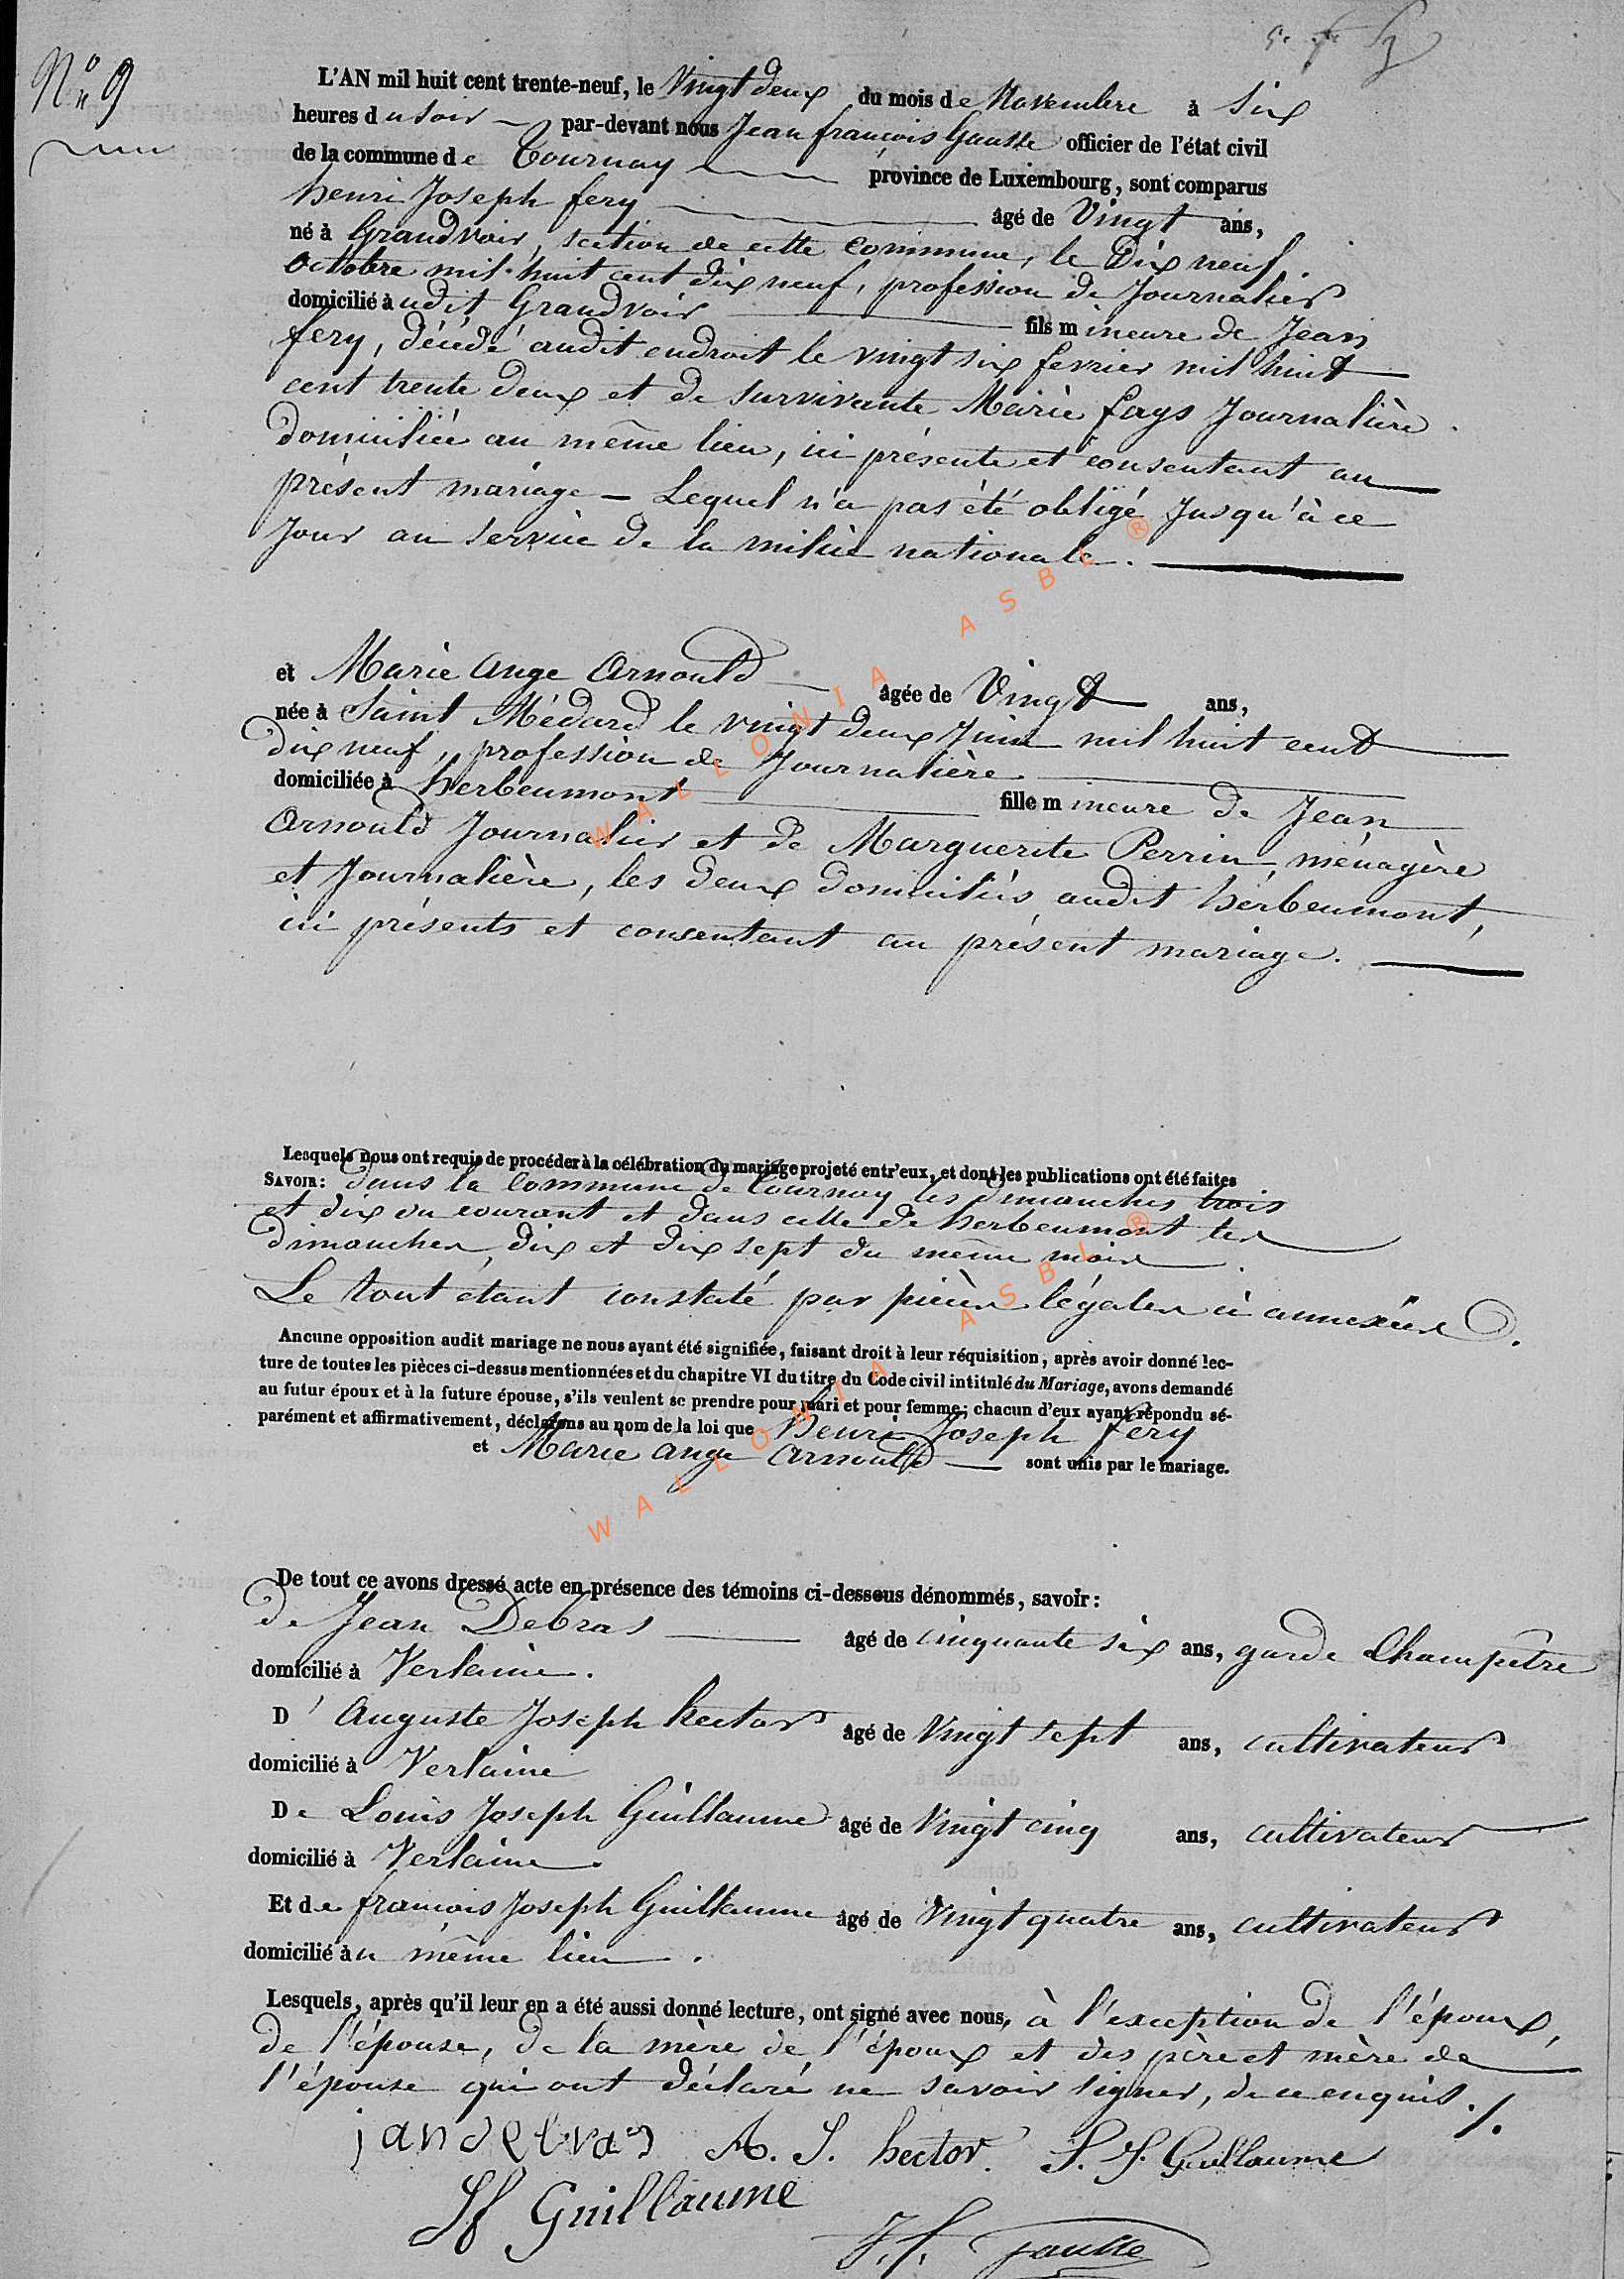 N° 9
L'AN mil huit cent trente-neuf, le Vingt deux du mois de Novembre à Six
heures du soir par-devant nous Jean françois Gausse officier de l'état civil
de la commune de Tournay province de Luxembourg, sont comparus
henri Joseph fery âgé de Vingt ans,
né à Grandvoir, section de cette commune, le Dix neuf
octobre mil huit cent dix neuf, profession de Journalier
domicilié audit Grandvoir fils mineure de Jean
fery, décédé audit endroit le vingt six fevrier mil huit
cent trente deux et de survivante Marie fays Journalière
domiciliée au même lieu, ici présente et consentant au
présent mariage – Lequel n'a pas été obligé Jusqu'à ce
Jour au service de la milice nationale.
et Marie Ange Arnould âgée de Vingt ans,
née à Saint Médard le vingt deux Juin mil huit cent
dix neuf, profession de Journalière
domiciliée à herbeumont fille mineure de Jean
Arnould Journalier et de Marguerite Perrin, ménagère
et Journalière, les deux domiciliés audit herbeumont,
ici présents et consentant au présent mariage.
Lesquels nous ont requis de procéder à la célébration du mariage projeté entr'eux, et dont les publications ont été faites
SAVOIR: dans la Commune de Tournay les dimanches trois
et dix du courant et dans celle de herbeumont les
dimanches, dix et dix sept du même mois.
Le tout étant constaté par pièces légales ci annexées.
Aucune opposition audit mariage ne nous ayant été signifiée, faisant droit à leur réquisition, après avoir donné lec-
ture de toutes les pièces ci-dessus mentionnées et du chapitre VI du titre du Code civil intitulé du Mariage, avons demandé
au futur époux et à la future épouse, s'ils veulent se prendre pour mari et pour femme; chacun d'eux ayant répondu sé-
parément et affirmativement, déclarons au nom de la loi que Henri Joseph fery
et Marie ange Arnould sont unis par le mariage.
De tout ce avons dressé acte en présence des témoins ci-dessous dénommés, savoir:
de Jean Debras âgé de cinquante six ans, garde Champêtre
domicilié à Verlaine.
D' Auguste Joseph hector âgé de Vingt sept ans, cultivateur
domicilié à Verlaine
De Louis Joseph Guillaume âgé de Vingt cinq ans, cultivateur
domicilié à Verlaine.
Et de françois Joseph Guillaume âgé de Vingt quatre ans, cultivateur
domicilié au même lieu.
Lesquels, après qu'il leur en a été aussi donné lecture, ont signé avec nous, à l'exception de l'époux,
de l'épouse, de la mère de l'époux et des père et mère de
l'épouse qui ont déclaré ne savoir signer, de ce enquis ./.
jandebras A. J. hector. L. J. Guillaume
Guillaume
J. f. Gausse
WALLONIA ASBL ®
WALLONIA ASBL ®